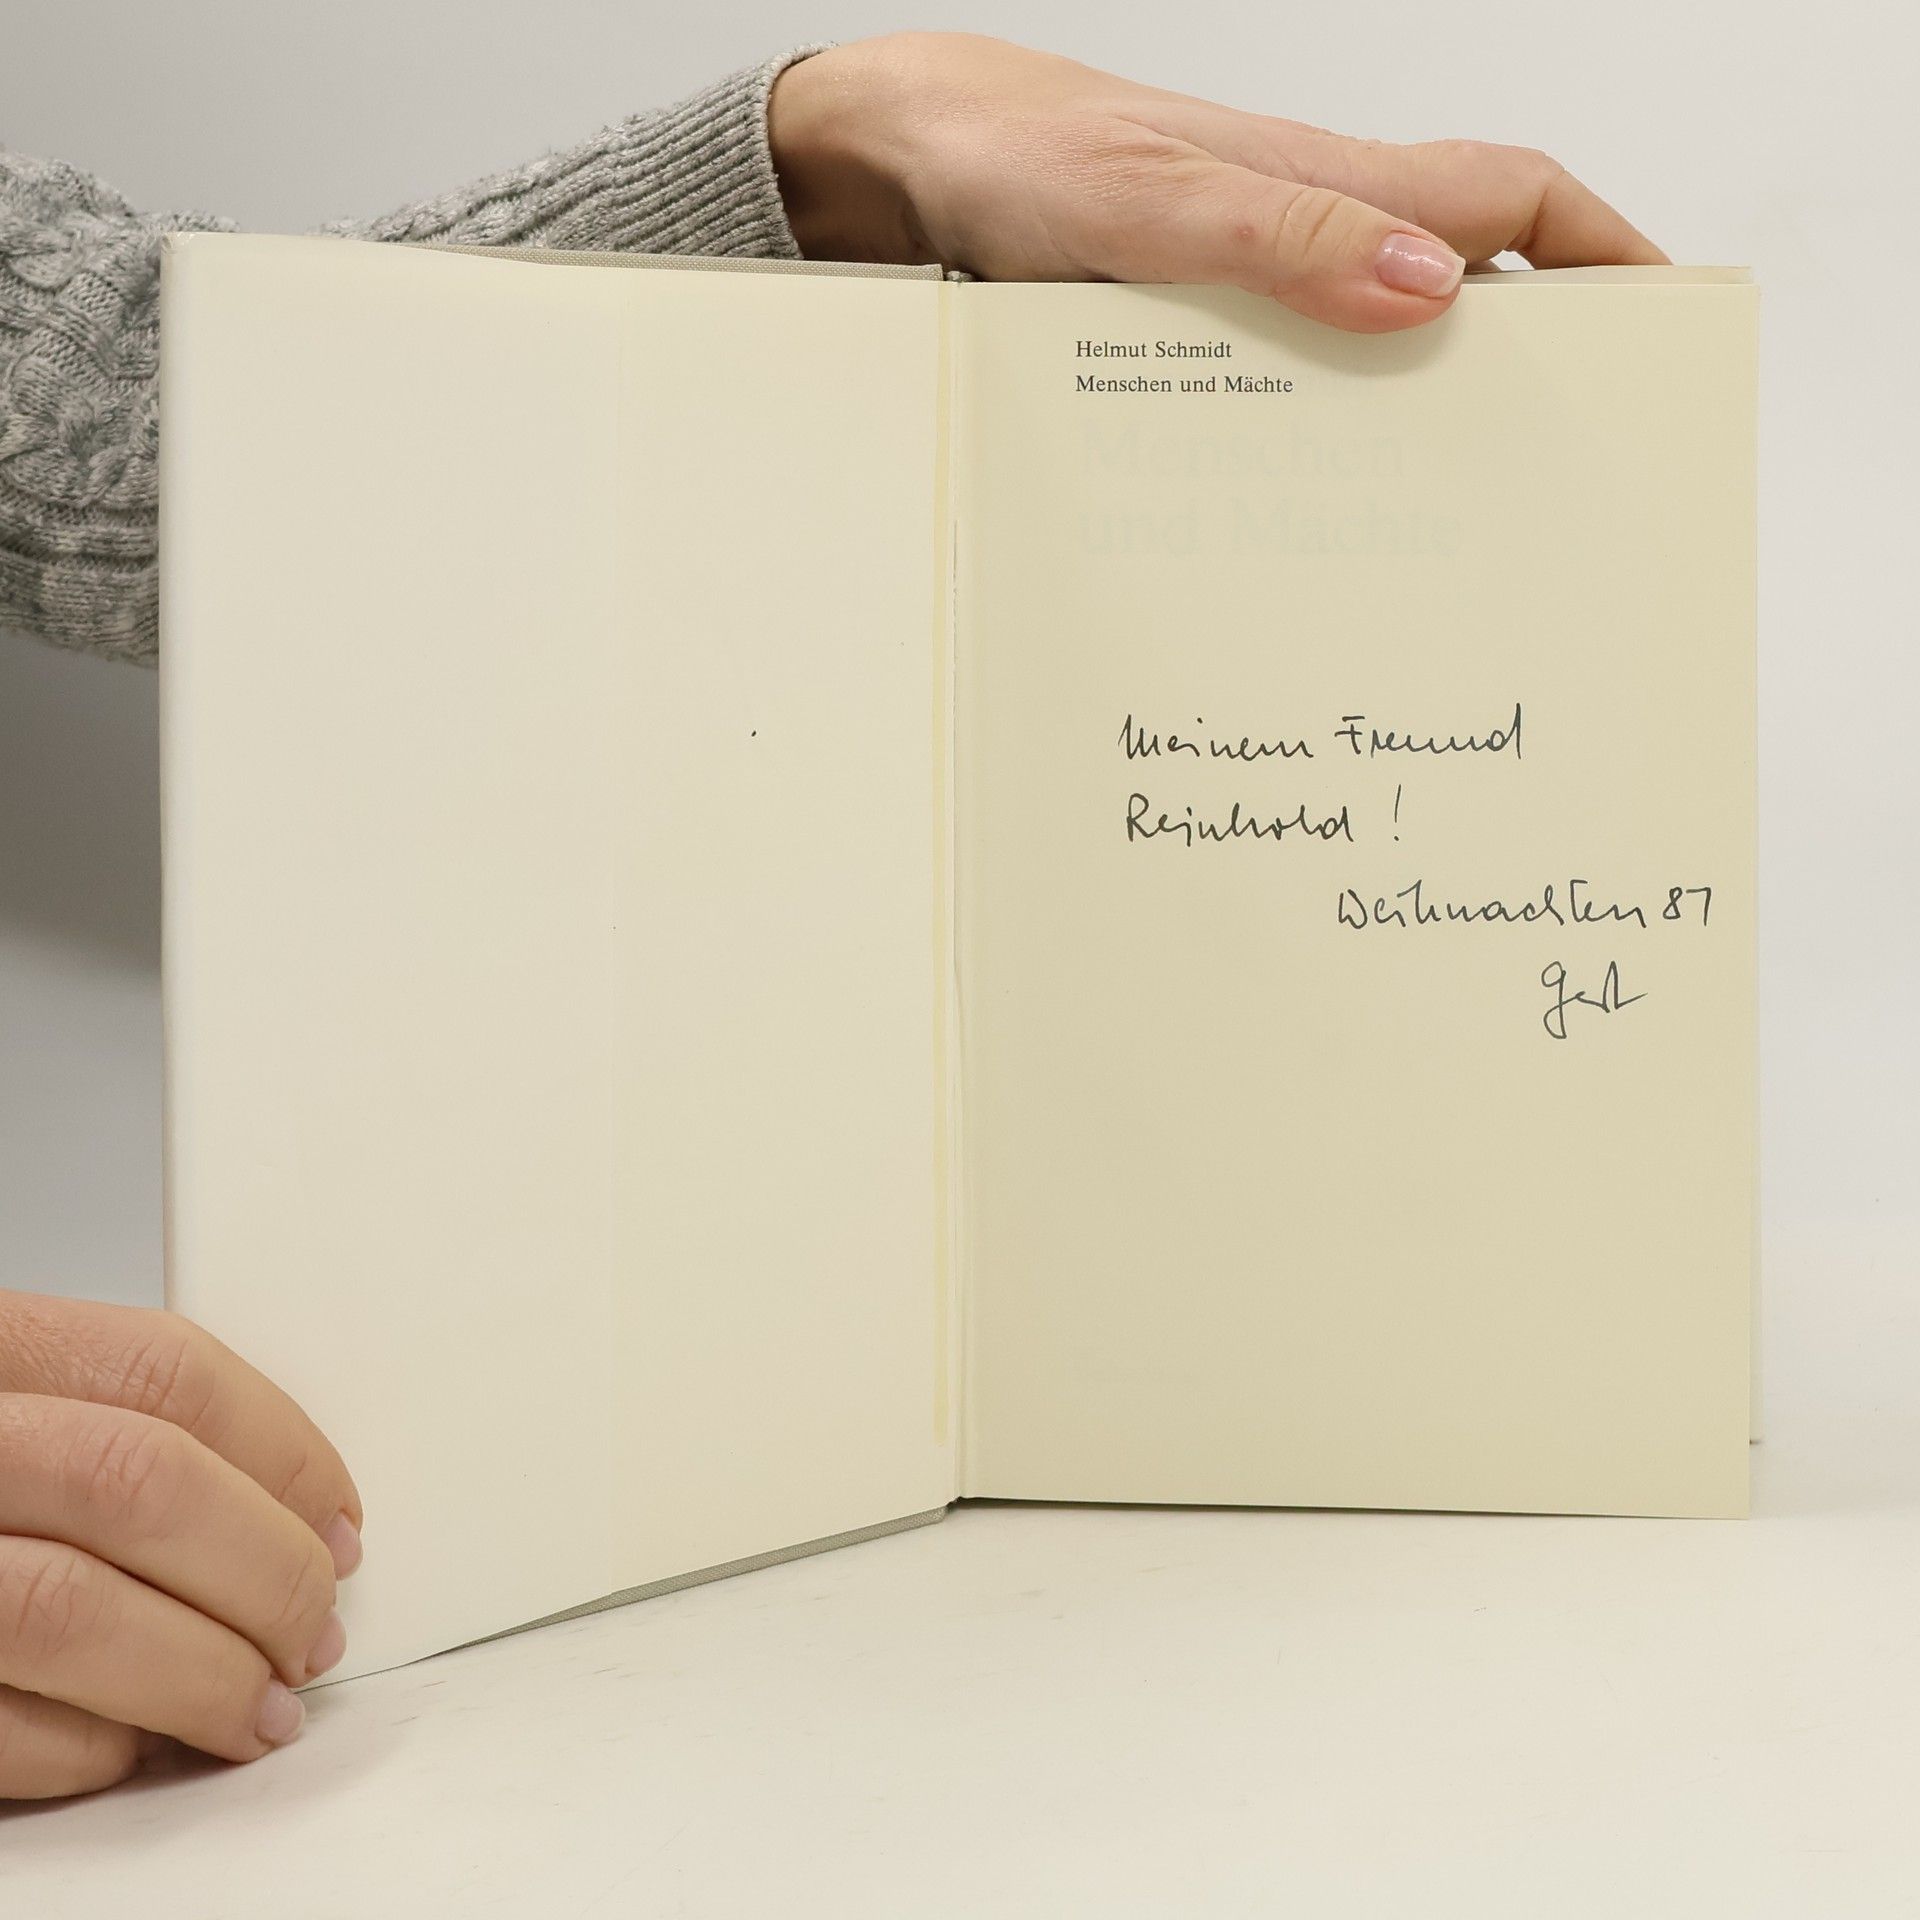 Helmut Schmidt
Menschen und Mächte
Menschen
und Mächte
Meinem Freund
Reinhold !
Weihnachten 87